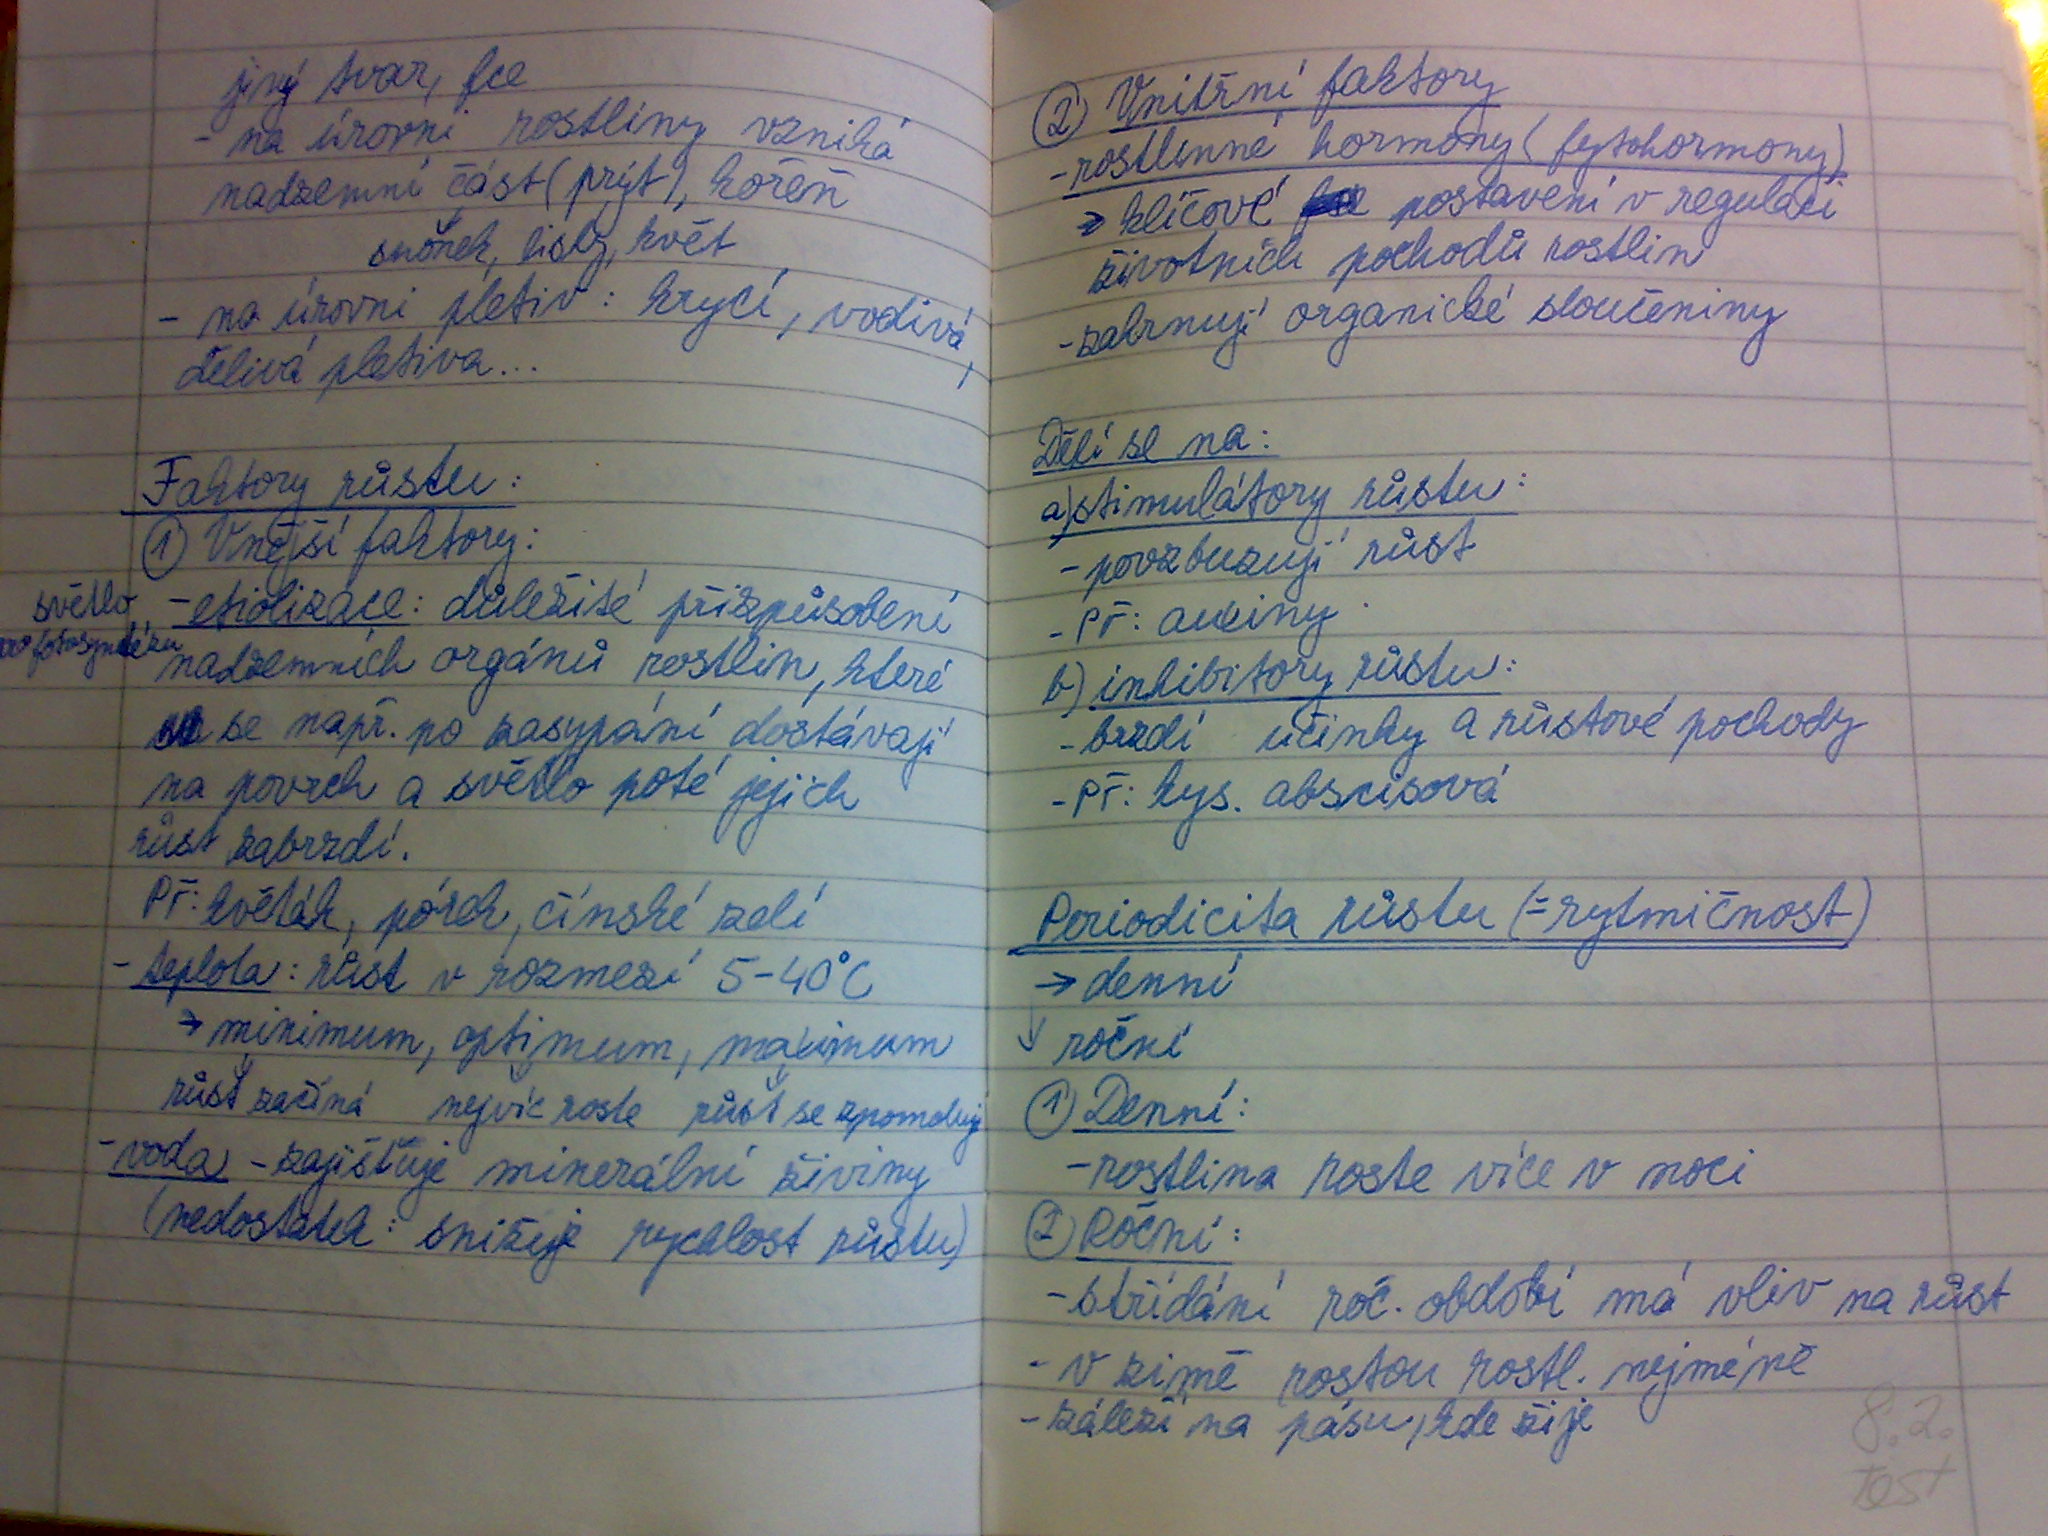 jiný tvar, fce
- na úrovni rostliny vzniká
nadzemní část (prýt), kořen
stonek, listy, květ
- na úrovni pletiv: krycí, vodivá,
dělivá pletiva...
Faktory růstu:
① Vnější faktory:
světlo - etiolizace: důležité přizpůsobení
pro fotosyntézu nadzemních orgánů rostlin, které
se např. po zasypání dostávají
na povrch a světlo poté jejich
růst zabrzdí.
Př: květák, pórek, čínské zelí
- teplota: růst v rozmezí 5-40°C
→ minimum, optimum, maximum
růst začíná nejvíc roste růst se zpomaluje
- voda - zajišťuje minerální živiny
(nedostatek: snižuje rychlost růstu)
② Vnitřní faktory
- rostlinné hormony (fytohormony)
→ klíčové postavení v regulaci
životních pochodů rostlin
- zahrnují organické sloučeniny
Dělí se na:
a) stimulátory růstu:
- povzbuzují růst
- Př: auxiny
b) inhibitory růstu:
- brzdí účinky a růstové pochody
- Př: kys. abscisová
Periodicita růstu (=rytmičnost)
→ denní
↓ roční
① Denní:
- rostlina roste více v noci
② Roční:
- střídání roč. období má vliv na růst
- v zimě rostou rostl. nejméně
- záleží na pásu, kde žije
8.2.
test